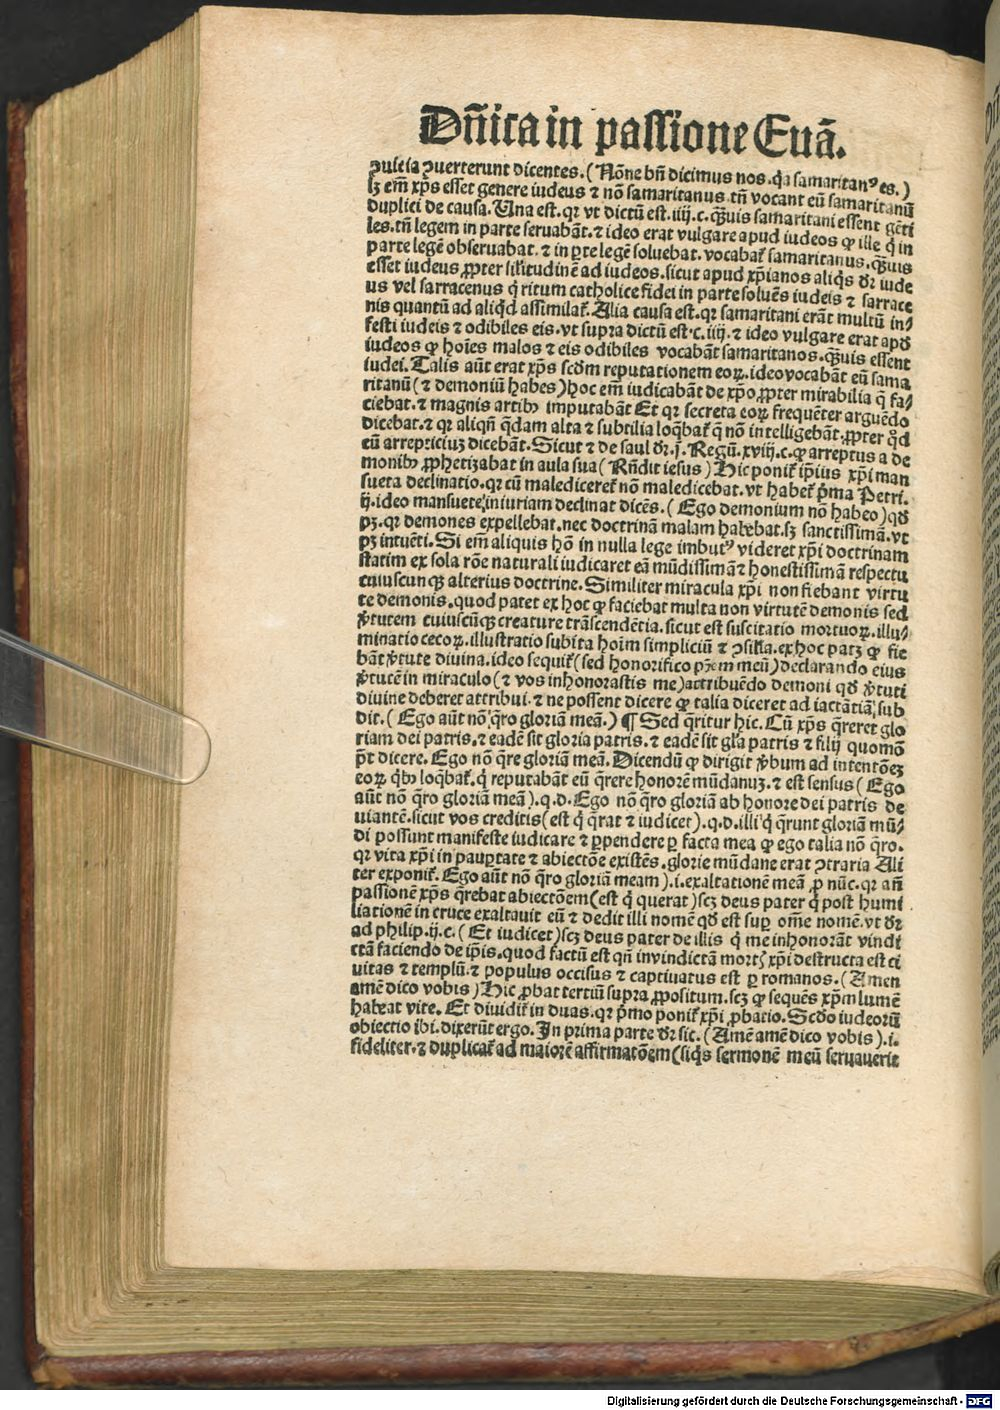 Dñica in passione Euã.
ꝯuicia ꝯuerterunt dicentes. (Nõne bñ dicimus nos. qꝛ samaritanꝰ es.)
sꝫ em̃ xp̃s esset genere iudeus ⁊ nõ samaritanus. tñ vocant eũ samaritanũ
duplici de causa. Una est. qꝛ vt dictũ est. iiij. c. qꝫuis samaritani essent gẽti
les. tñ legem in parte seruabãt. ⁊ ideo erat vulgare apud iudeos ꝙ ille q̃ in
parte legẽ obseruabat. ⁊ in ꝑte legẽ soluebat. vocabat̃ samaritanus. qꝫuis
esset iudeus ꝓpter sil̃itudinẽ ad iudeos. sicut apud xp̃ianos aliq̃s dꝛ iude
us vel sarracenus q̃ ritum catholice fidei in parte soluẽs iudeis ⁊ sarrace
nis quantũ ad aliq̃d assimilat̃. Alia causa est. qꝛ samaritani erãt multũ in⸗
festi iudeis ⁊ odibiles eis. vt supra dictũ est. c. iiij. ⁊ ideo vulgare erat apd̃
iudeos ꝙ hoĩes malos ⁊ eis odibiles vocabãt samaritanos. qꝫuis essent
iudei. Talis aũt erat xp̃s scd̃m reputationem eoꝝ. ideo vocabãt eũ sama
ritanũ (⁊ demoniũ habes) hoc em̃ iudicabãt de xp̃o ꝓpter mirabilia q̃ fa⸗
ciebat. ⁊ magnis artibꝫ imputabãt Et qꝛ secreta eoꝝ frequẽter arguẽdo
dicebat. ⁊ qꝛ aliqñ q̃dam alta ⁊ subtilia loq̃bat̃ q̃ nõ intelligebãt. ꝓpter q̃d
eũ arrepticiuꝫ dicebãt. Sicut ⁊ de saul dꝛ. j. Regũ. xviij. c. ꝙ arreptus a de
monibꝫ ꝓphetizabat in aula sua (Rñdit iesus) Hic ponit̃ ip̃ius xp̃i man
sueta declinatio. qꝛ cũ malediceret̃ nõ maledicebat. vt habet̃ p̃ma Petri.
ij. ideo mansuete iniuriam declinat dicẽs. (Ego demonium nõ habeo) qð
pꝫ. qꝛ demones expellebat. nec doctrinã malam habebat. sꝫ sanctissimã. vt
pꝫ intuẽti. Si em̃ aliquis hõ in nulla lege imbutꝰ videret xp̃i doctrinam
statim ex sola rõe naturali iudicaret eã mũdissimã ⁊ honestissimã respectu
cuiuscunqꝫ alterius doctrine. Similiter miracula xp̃i non fiebant virtu
te demonis. quod patet ex hoc ꝙ faciebat multa non virtutẽ demonis sed
v̓tutem cuiuscũqꝫ creature trãscendẽtia. sicut est suscitatio mortuoꝝ. illu⸗
minatio cecoꝝ. illustratio subita hoĩm simpliciũ ⁊ ꝯsil̃ia. ex hoc patꝫ ꝙ fie
bãt v̓tute diuina. ideo sequit̃ (sed honorifico pr̃em meũ) declarando eius
v̓tutẽ in miraculo (⁊ vos inhonorastis me) attribuẽdo demoni qð v̓tuti
diuine deberet attribui. ⁊ ne possent dicere ꝙ talia diceret ad iactãtiã. sub
dit. (Ego aũt nõ q̃ro gloriã meã.) ¶ Sed q̃ritur hic. Cũ xp̃s q̃reret glo
riam dei patris. ⁊ eadẽ sit gloria patris. ⁊ eadẽ sit gl̃a patris ⁊ filij quomõ
p̃t dicere. Ego nõ q̃re gloriã meã. Dicendũ ꝙ dirigit v̓bum ad intentõeꝫ
eoꝝ q̃bꝫ loq̃bat̃. q̃ reputabãt eũ q̃rere honorẽ mũdanuꝫ. ⁊ est sensus (Ego
aũt nõ q̃ro gloriã meã). q. d. Ego nõ q̃ro gloriã ab honore dei patris de
uiantẽ. sicut vos creditis (est q̃ q̃rat ⁊ iudicet). q. d. illi q̃ q̃runt gloriã mũ⸗
di possunt manifeste iudicare ⁊ ꝑpendere ꝑ facta mea ꝙ ego talia nõ q̃ro.
qꝛ vita xp̃i in pauꝑtate ⁊ abiectõe existẽs. glorie mũdane erat ꝯtraria Ali
ter exponit̃. Ego aũt nõ q̃ro gloriã meam). i. exaltationẽ meã ꝓ nũc. qꝛ añ
passionẽ xp̃s q̃rebat abiectõem (est q̃ querat) scꝫ deus pater q̃ post humi
liationẽ in cruce exaltauit eũ ⁊ dedit illi nomẽ qð est suꝑ om̃e nomẽ. vt dꝛ
ad philip. ij. c. (Et iudicet) scꝫ deus pater de illis q̃ me inhonorãt vindi
ctã faciendo de ip̃is. quod factũ est qñ in vindictã mortꝭ xp̃i destructa est ci
uitas ⁊ templũ. ⁊ populus occisus ⁊ captiuatus est ꝑ romanos. (Amen
amẽ dico vobis) Hic ꝓbat tertiũ supra ꝓpositum. scꝫ ꝙ sequẽs xp̃m lumẽ
habeat vite. Et diuidit̃ in duas. qꝛ p̃mo ponit̃ xp̃i ꝓbatio. Scd̃o iudeorũ
obiectio ibi. dixerũt ergo. In prima parte dꝛ sic. (Amẽ amẽ dico vobis). i.
fideliter. ⁊ duplicat̃ ad maiorẽ affirmatõem (siq̃s sermonẽ meũ seruauerit
Digitalisierung gefördert durch die Deutsche Forschungsgemeinschaft - DFG